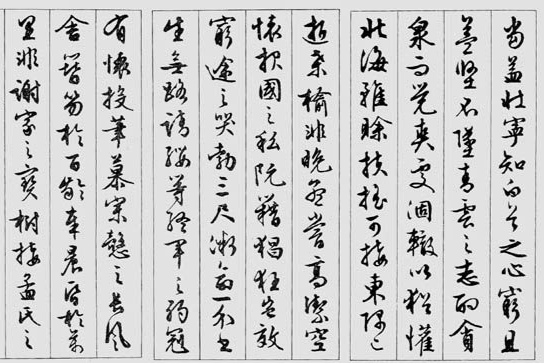 當益壯寧知白首之心窮且
益堅不墜青雲之志酌貪
泉而覺爽處涸轍以猶懽
北海雖賒扶搖可接東隅已
逝桑榆非晚孟嘗高潔空
懷報國之私阮籍猖狂豈效
窮途之哭勃三尺微命一介書
生無路請纓等終軍之弱冠
有懷投筆慕宗愨之長風
舍簪笏於百齡奉晨昏於萬
里非謝家之寶樹接孟氏之